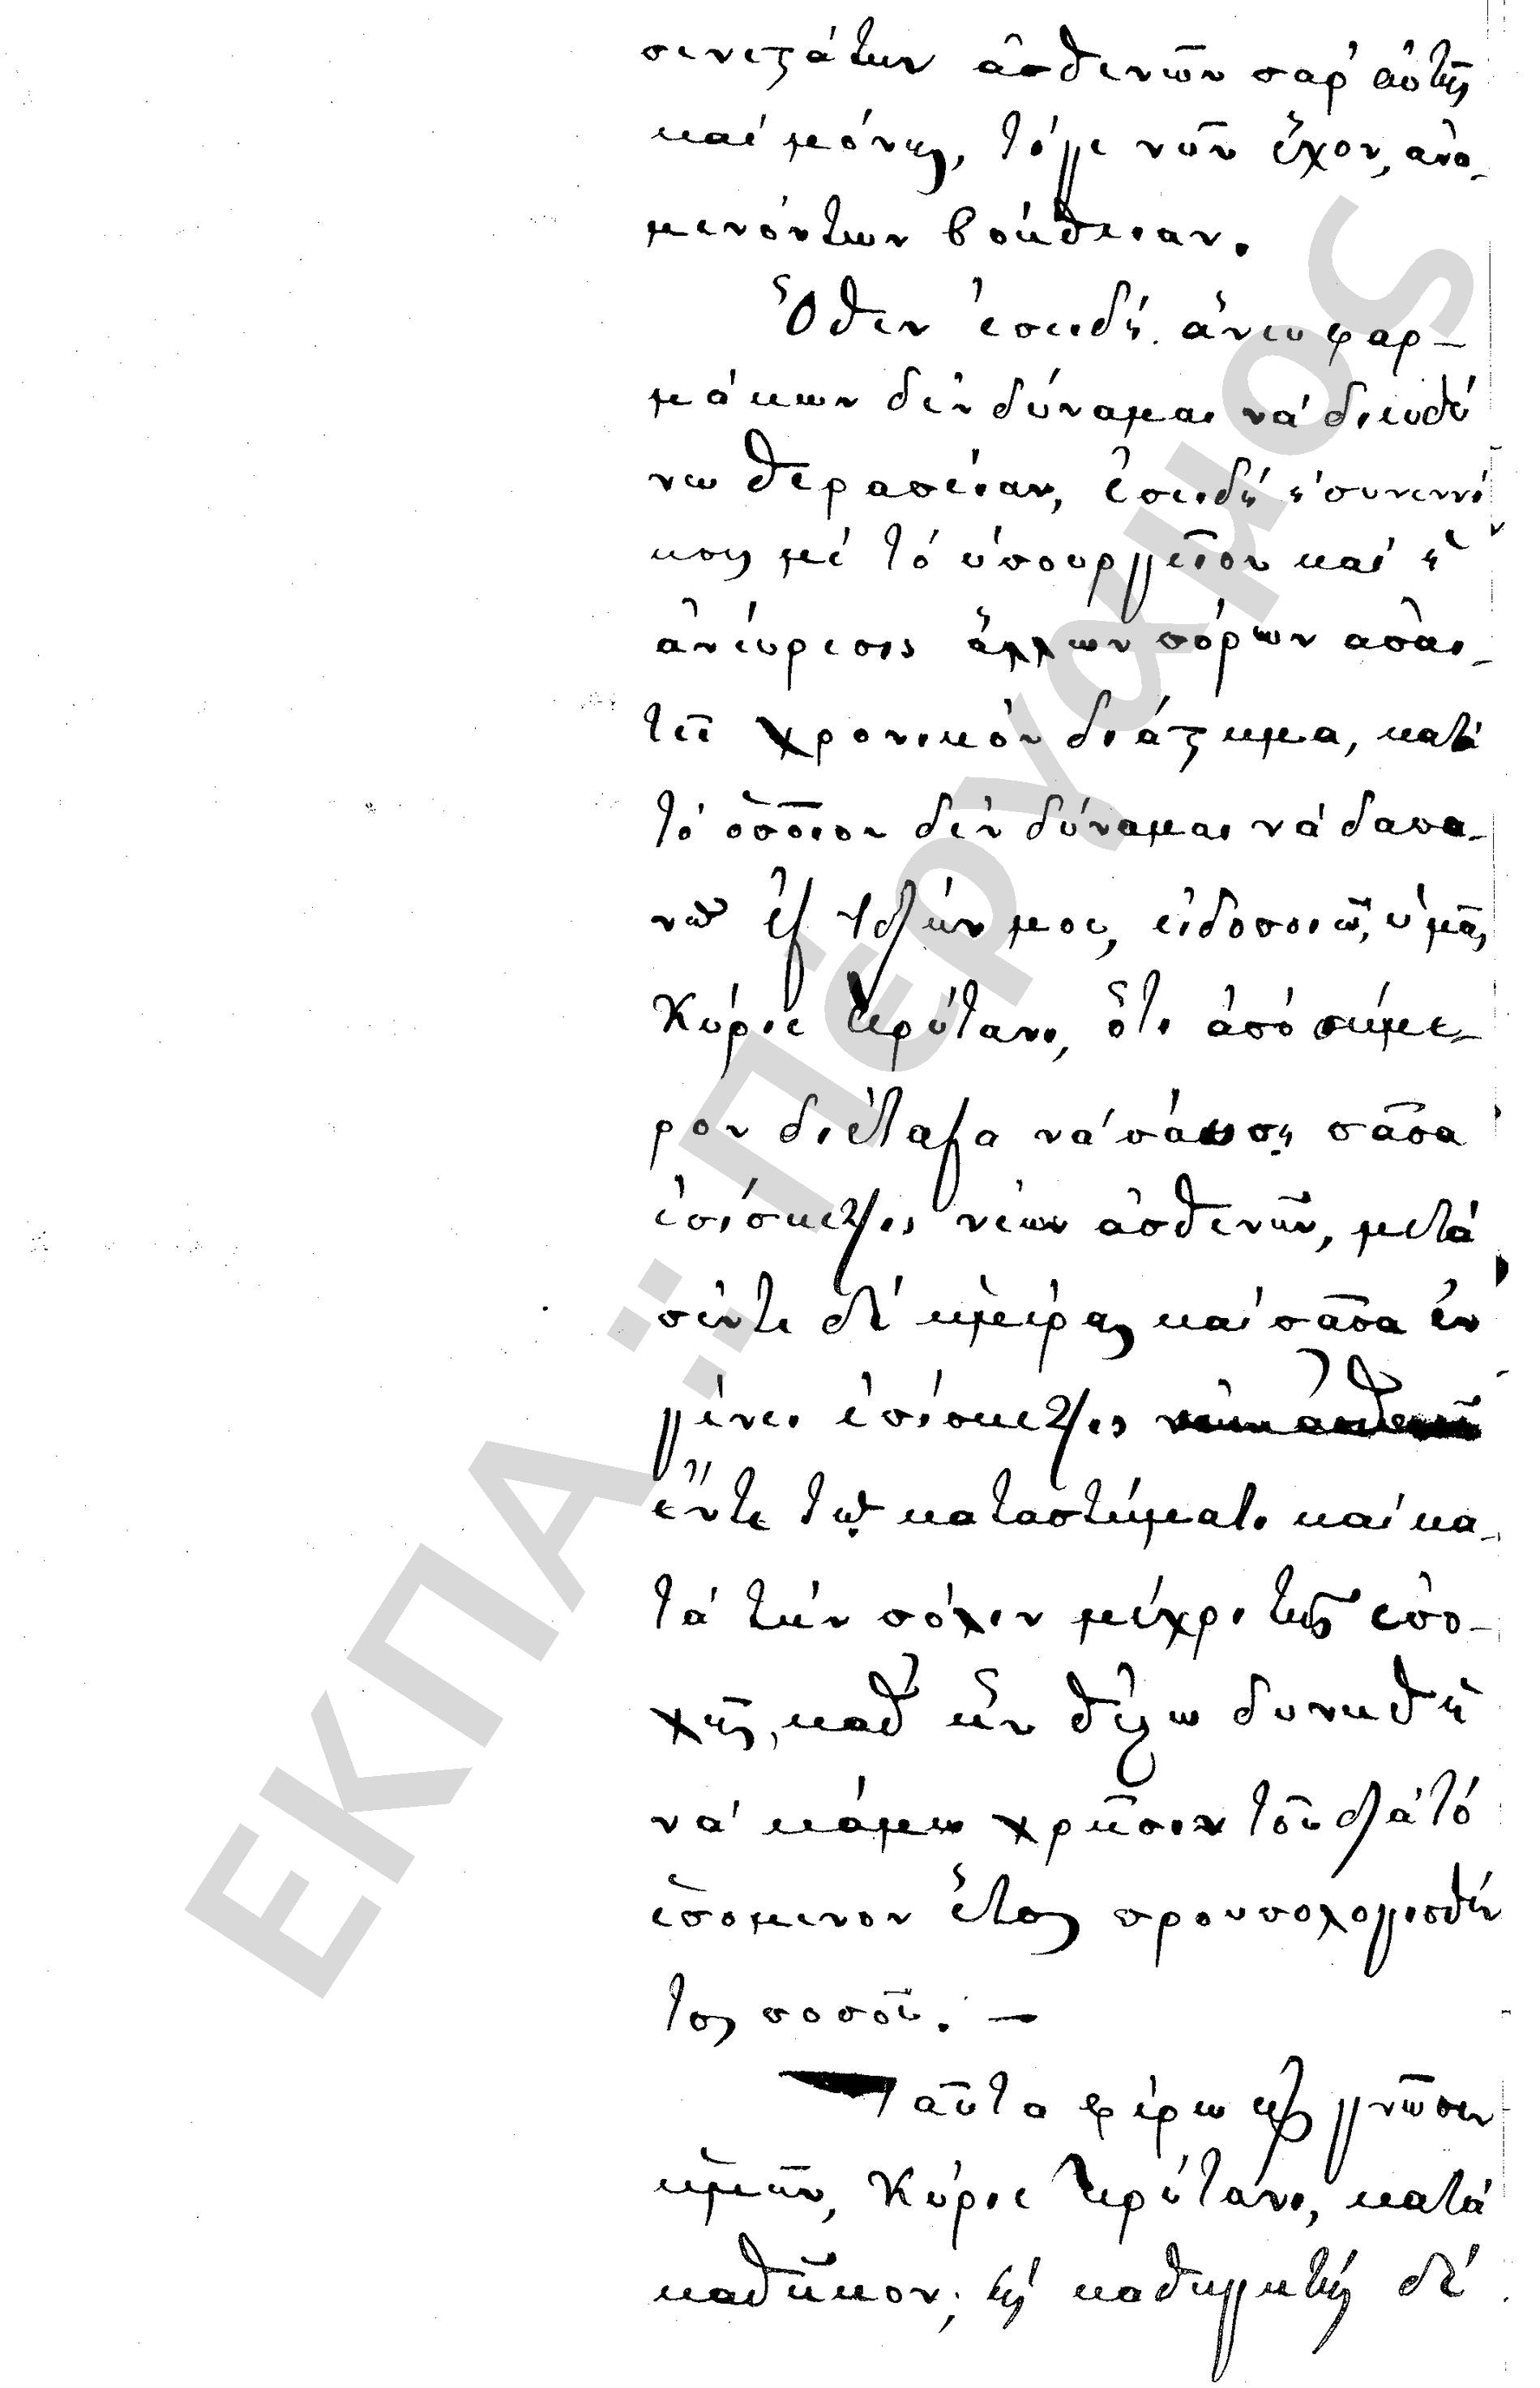 πενεστάτων ἀσθενῶν παρ' αὐτῆς
καὶ μόνης, τό γε νῦν ἔχον, ἀνα-
μενόντων βοήθειαν.
Ὅθεν ἐπειδή ἄνευ φαρ-
μάκων δέν δύναμαι νά διευθύ
νω θεραπείαν, ἐπειδή ἡ συνεννό
ησις μέ τό ὑπουργεῖον καί ἡ
ἀνεύρεσις ἄλλων πόρων ἀπαι-
τεῖ χρονικόν διάστημα, κατά
τό ὁποῖον δέν δύναμαι νά δαπα-
νῶ ἐξ ἰδίων μου, εἰδοποιῶ ὑμᾶς,
Κύριε Πρύτανι, ὅτι ἀπό σήμε-
ρον διέταξα νά παύσῃ πᾶσα
ἐπίσκεψις νέων ἀσθενῶν, μετά
πέντε δέ ἡμέρας καί πᾶσα ἐν
γένει ἐπίσκεψις
ἔν τε τῷ καταστήματι καί κα-
τά τήν πόλιν μέχρι τῆς ἐπο-
χῆς, καθ' ἥν θέλω δυνηθῆ
νά κάμω χρῆσιν τοῦ διά τό
ἑπόμενον ἔτος προϋπολογισθέν
τος ποσοῦ. —
Ταῦτα φέρω εἰς γνῶσιν
ὑμῶν, Κύριε Πρύτανι, κατά
καθῆκον, ὡς καθηγητής δέ
ΕΚΠΑ :: Πέργαμος